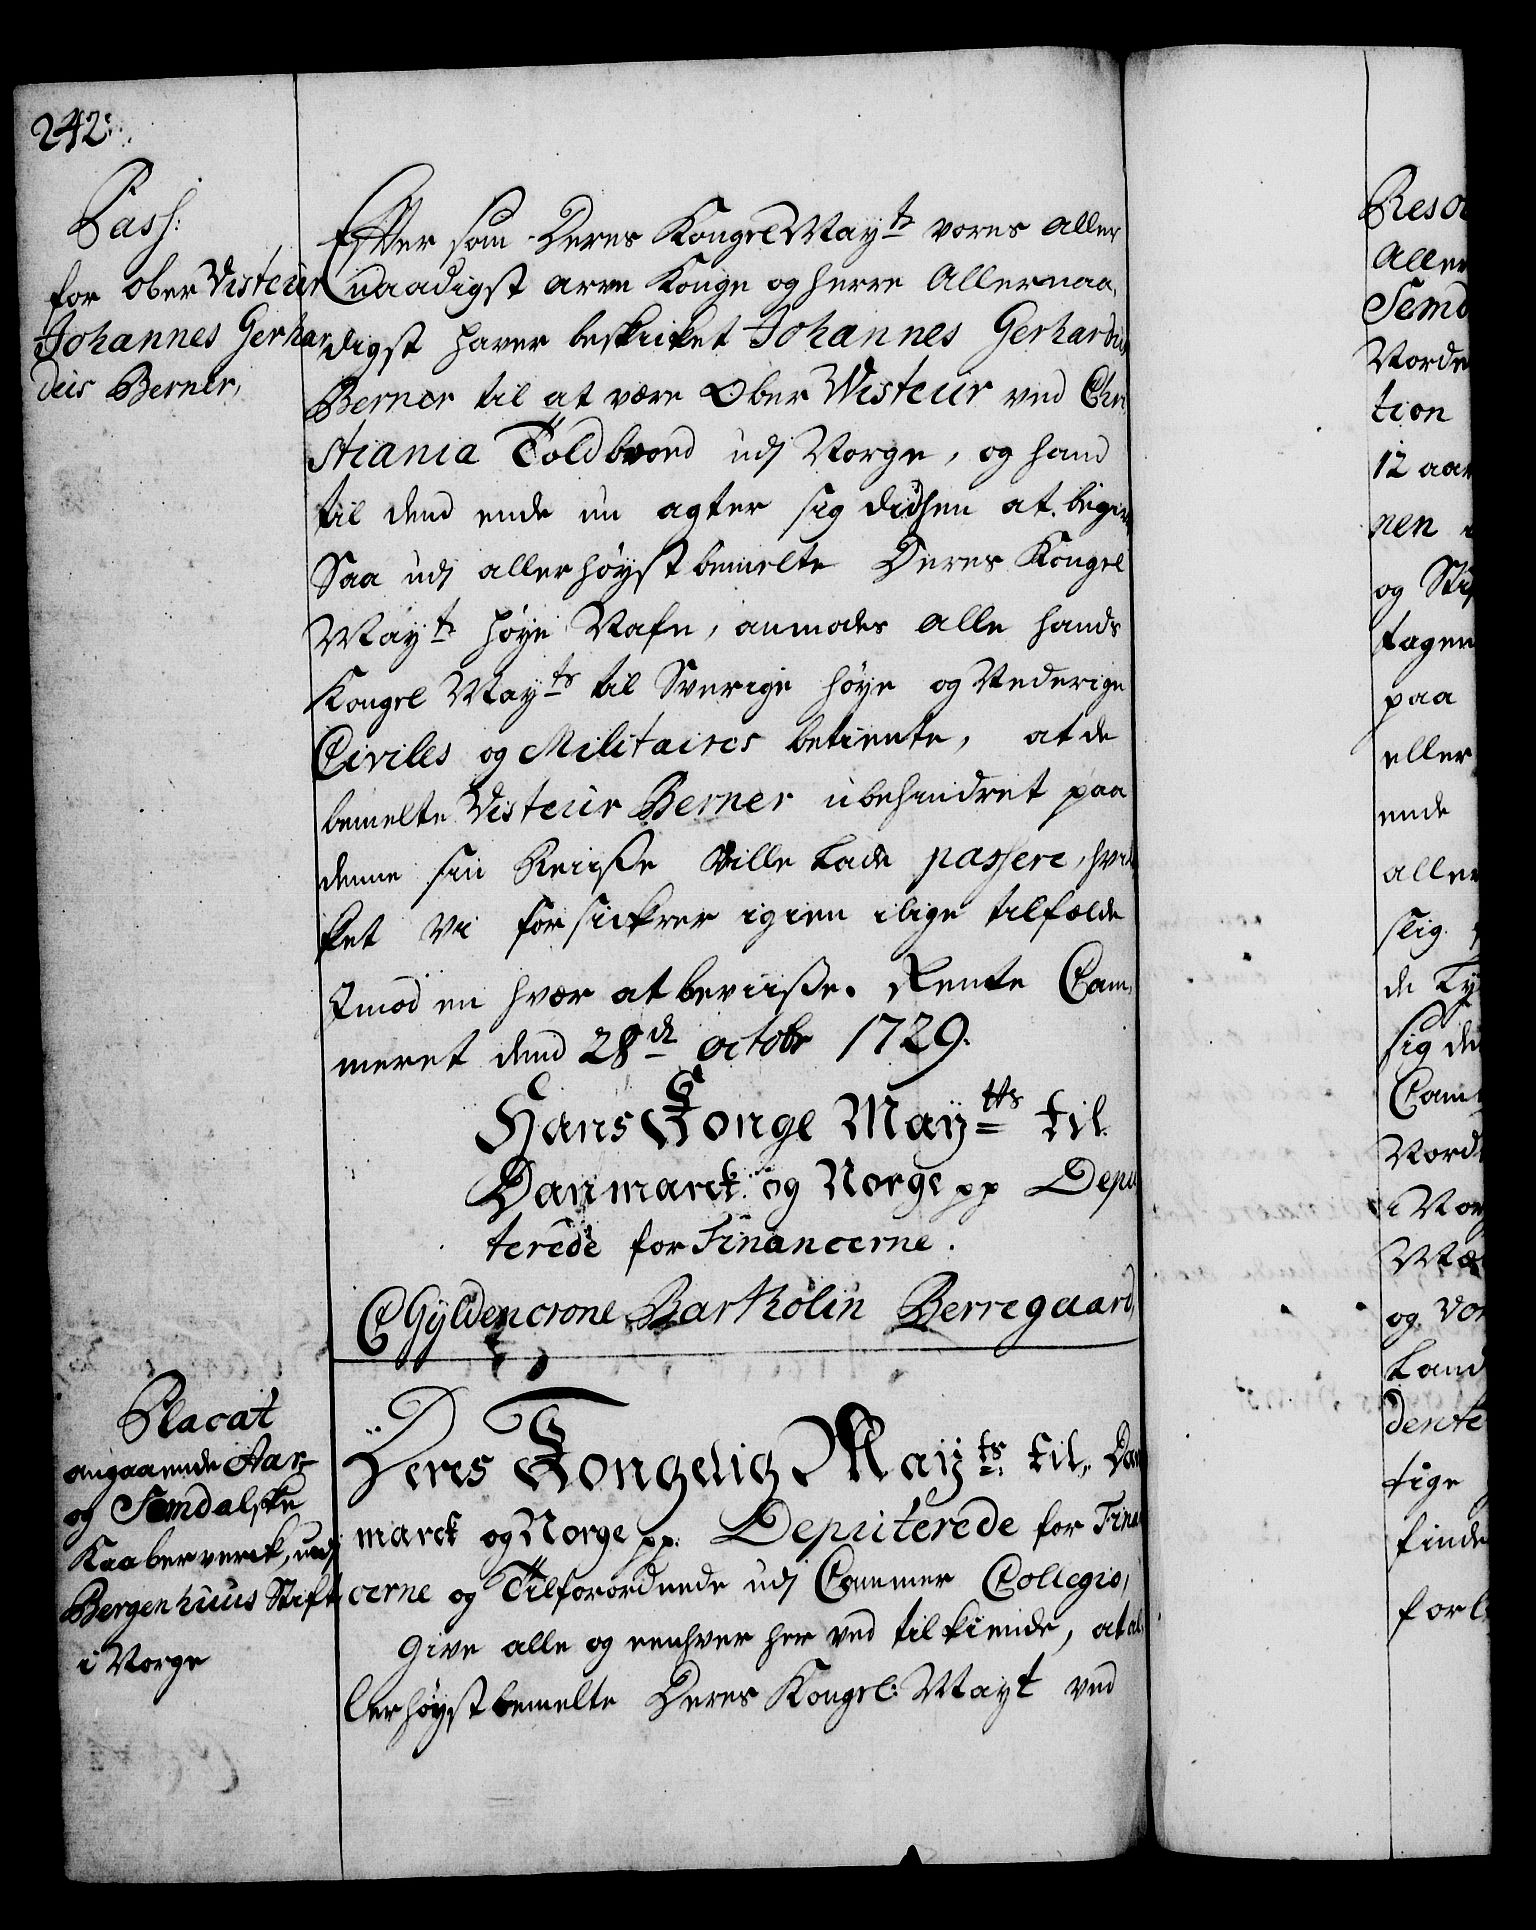 242:
Pass:
for Ober Visteur
Johannes Gerhar
dus Berner,
Efter som Deres Kongel May:ts vores aller
naadigst arve Konge og Herre Allernaa,
digst haver beskicket Johannes Gerhardus
Berner til at være Ober Visteur ved Chri
stiania Toldboed udj Norge, og hand
til dend ende nu agter sig didhen at begive
Saa udj allerhøyst bemelte Deres Kongel
May:ts høye Nafn, anmodes alle hands
Kongel May:ts til Sverige høye og Nederige
Civiles og Militaires betiente, at de
bemelte Visteur Berner ubehindret paa
denne sin Reiße Ville Lade passere, hvil
ket Vi forsickrer igien i lige tilfælde
Imod en hver at beviiße. Rente Cam,
meret dend 28de octobr 1729.
Hans Konge May:tts til
Danmarck og Norge pp Depu
terede for Financerne.
C Gyldencrone Bartholin Berregaard,
Placat
angaaende Aar-
og Semdalske
Kaaberverck, udj
Bergenhuus Stift
i Norge
Deres Kongelig May:ts til Dan
marck og Norge pp: Deputerede for Finan
cerne og Tilforordnede udj Cammer Collegio,
Give alle og eenhver her ved tilkiende, at al
lerhøyst bemelte Deres Kongel: Mayt ved
Reso
Aller
Semd
Norde
tion
12 aar
nen
og Stif
tagen
paa
eller
ende
aller
slig
de Ty
sig de
Cam
Nord
i Nor
Mæ
og Vo
Land
dente
tige
finde
forl